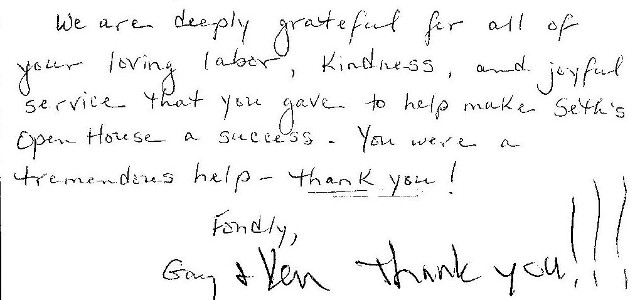 We are deeply grateful for all of
your loving labor, kindness, and joyful
service that you gave to help make Seth's
Open House a success. You were a
tremendous help - thank you!
Fondly,
Gay & Ken thank you!!!